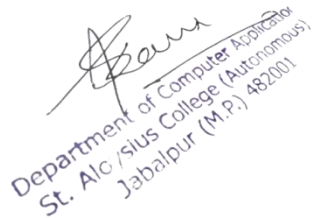 Department of Computer Application
St. Aloysius College (Autonomous)
Jabalpur (M.P.) 482001